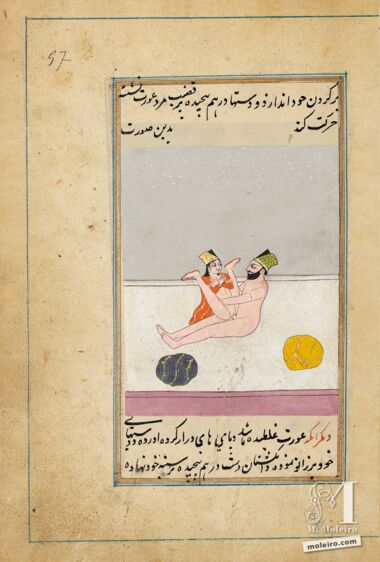 57
بر گردن خود اندازد و دستها درهم پیچیده بر قضیب مرد عورت نشسته
حرکت کند بدین صورت
دیگر آنکه عورت غلطیده باشد و پای های دراز کرده آورده و دستهای
خود بر زانو نموده و انگشتان دست درهم پیچیده بر سینه خود نهاده
M
M. Moleiro
moleiro.com